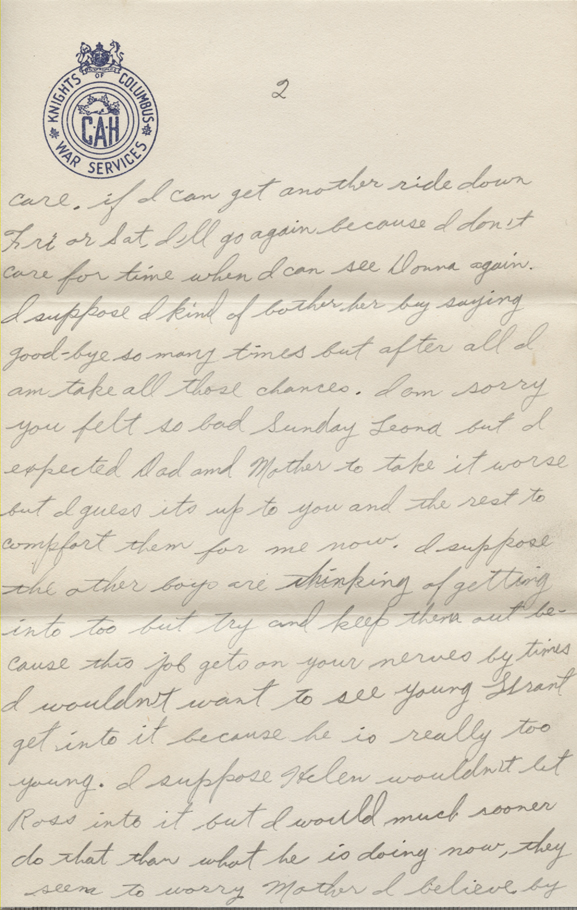 KNIGHTS OF COLUMBUS
C·A·H
WAR SERVICES
2
care. if I can get another ride down
Fri or Sat, I'll go again because I don't
care for time when I can see Donna again.
I suppose I kind of bother her buy saying
good-bye so many times but after all I
am take all those chances. I am sorry
you felt so bad Sunday Leona but I
expected Dad and Mother to take it worse
but I guess its up to you and the rest to
compfort them for me now. I suppose
the other boys are thinking of getting
into too but try and keep them out be-
cause this job gets on your nerves by times
I wouldn't want to see young Grant
get into it because he is really too
young. I suppose Helen wouldn't let
Ross into it but I would much sooner
do that than what he is doing now, they
seem to worry Mother I believe by